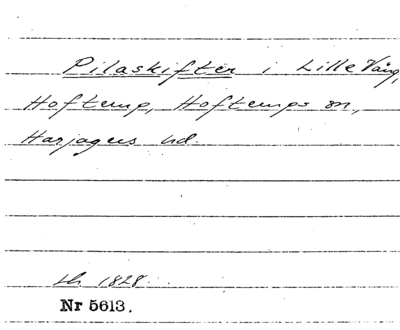 Pilaskifter i Lille Väng,
Hofterup, Hofterups sn,
Harjagers hd.
Lh 1828.
Nr 5613.